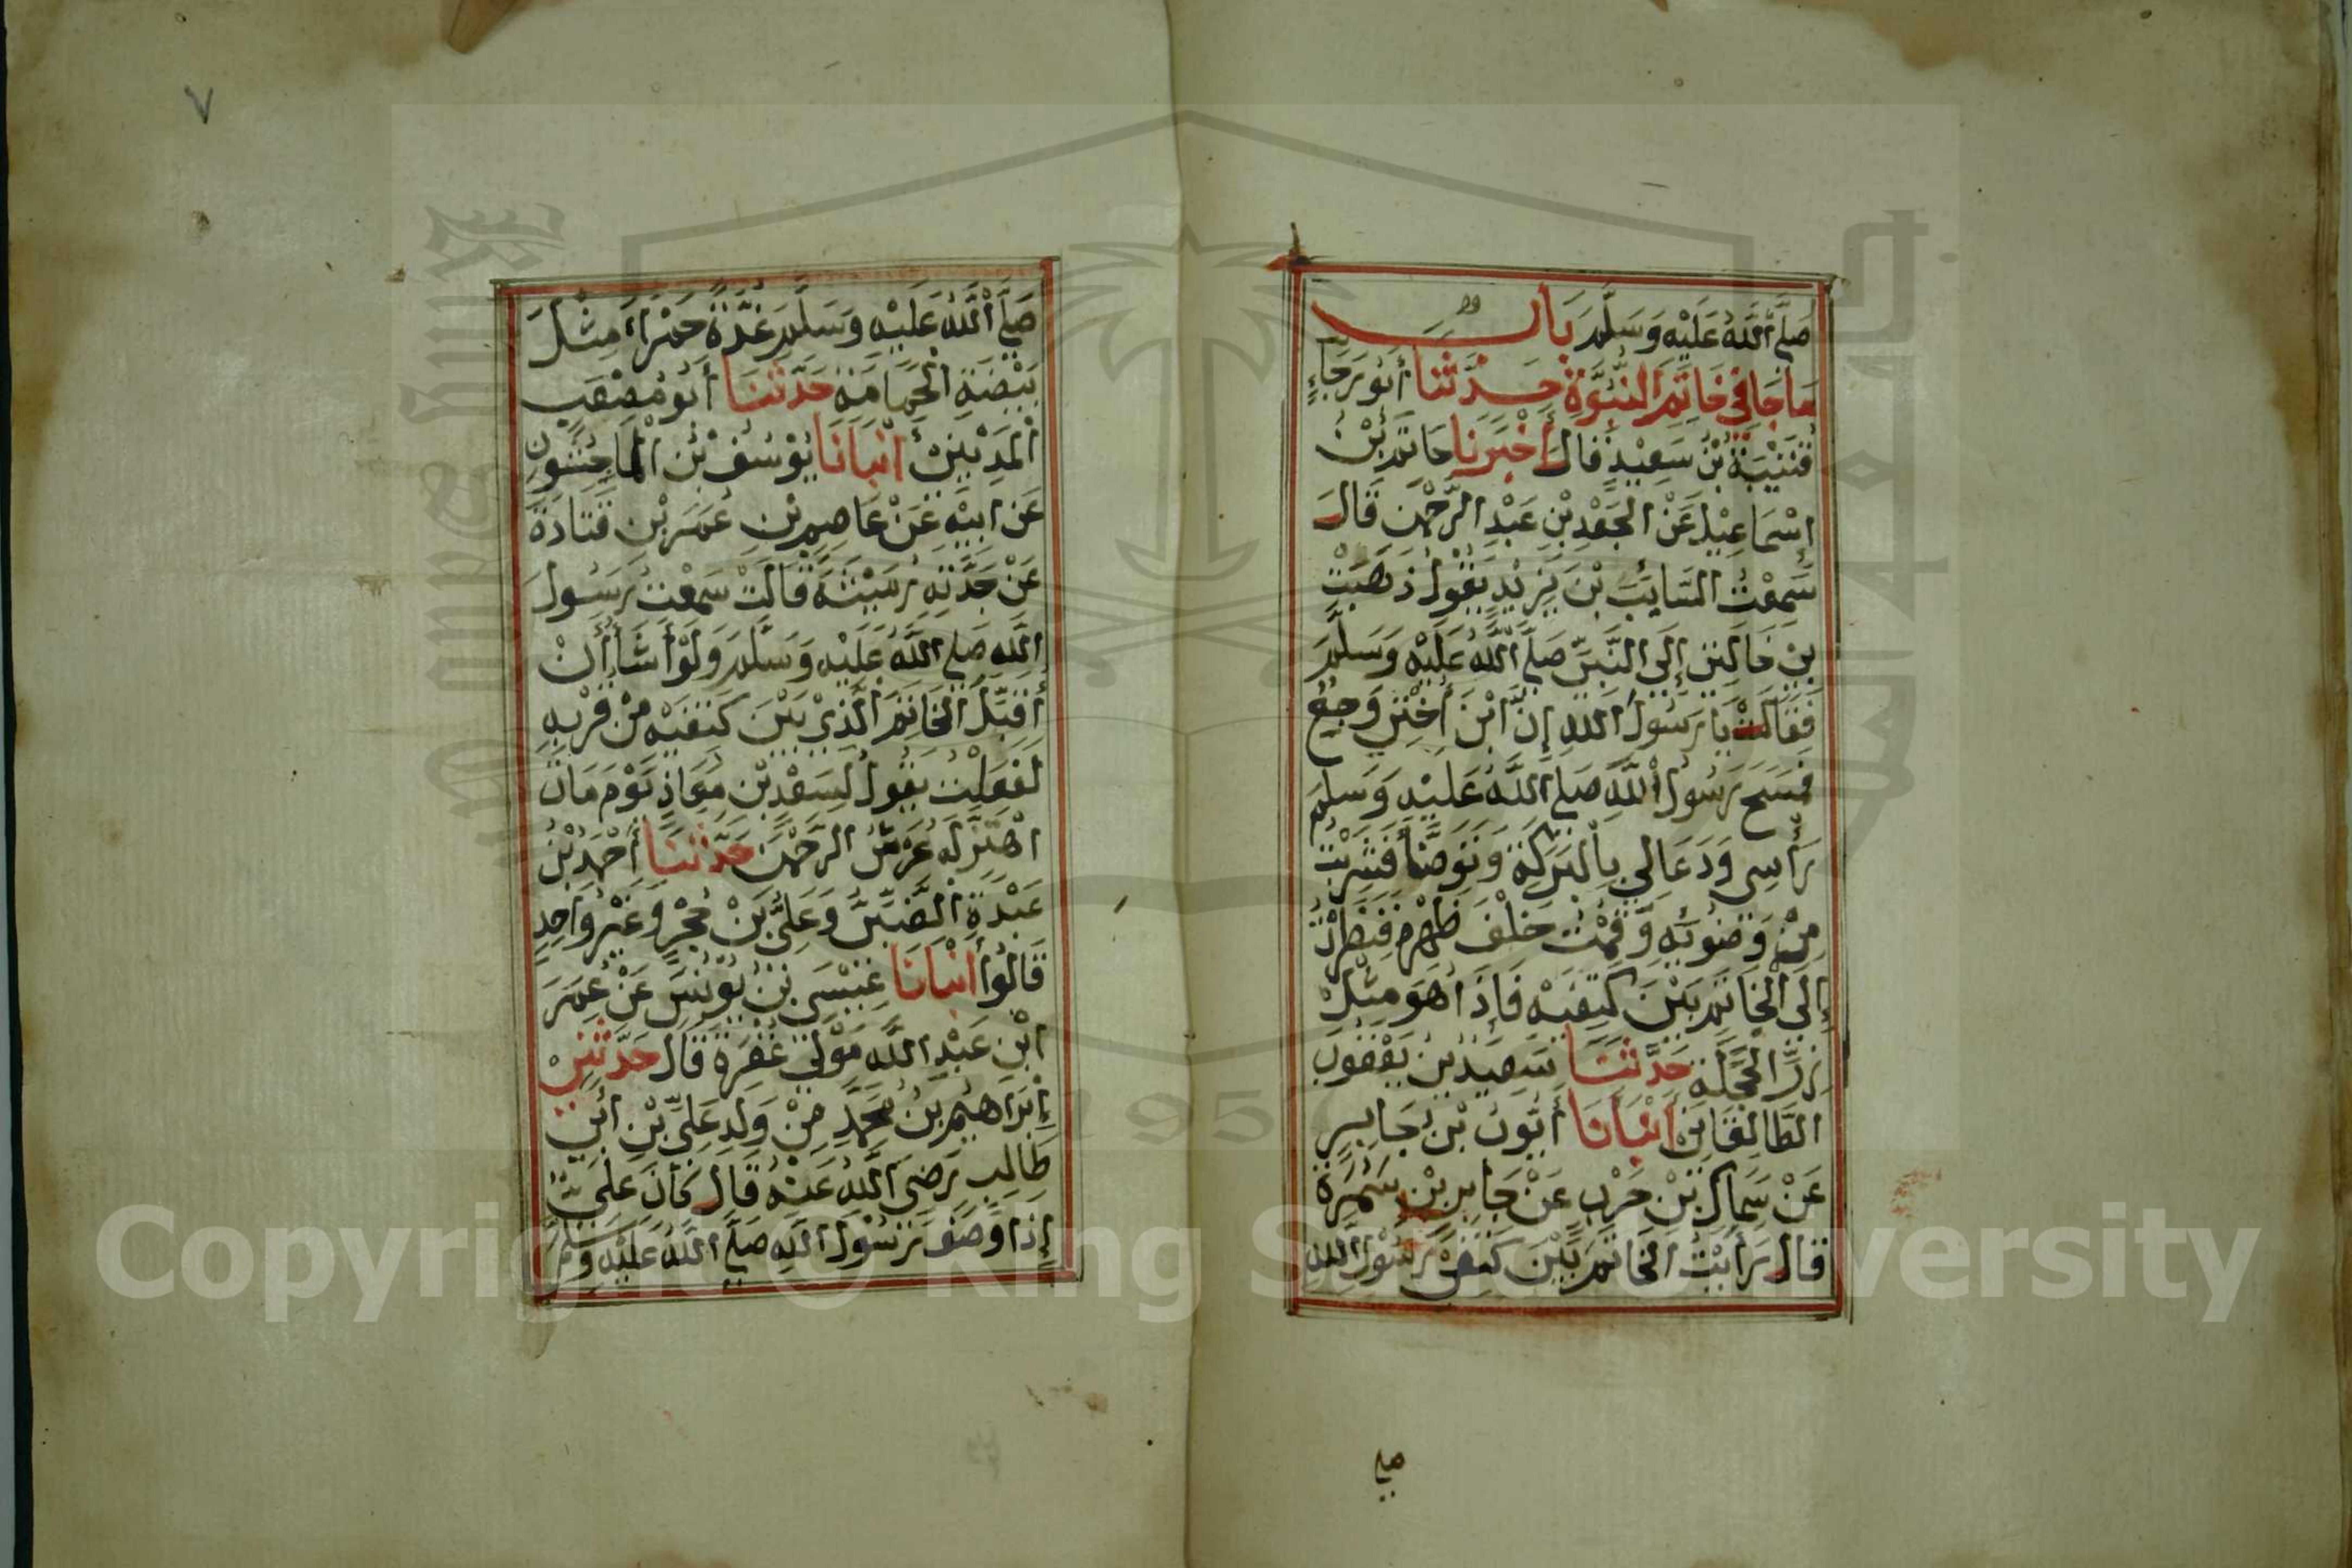 صَلَّى اللَّهُ عَلَيْهِ وَسَلَّمَ بَابُ
مَا جَا فِي خَاتَمِ النُّبُوَّةِ حَدَّثَنَا أَبُو رَجَاءٍ
قُتَيْبَةُ بْنُ سَعِيْدٍ قَالَ أَخْبَرَنَا حَاتِمُ بْنُ
إِسْمَاعِيْلَ عَنِ الْجَعْدِ بْنِ عَبْدِ الرَّحْمٰنِ قَالَ
سَمِعْتُ السَّايِبَ بْنَ يَزِيْدٍ يَقُوْلُ ذَهَبَتْ
بِيْ خَالَتِيْ إِلَى النَّبِيِّ صَلَّى اللَّهُ عَلَيْهِ وَسَلَّمَ
فَقَالَتْ يَا رَسُوْلَ اللَّهِ إِنَّ ابْنَ أُخْتِيْ وَجِعٌ
فَمَسَحَ رَسُوْلُ اللَّهِ صَلَّى اللَّهُ عَلَيْهِ وَسَلَّمَ
رَأْسِي وَدَعَا لِي بِالْبَرَكَةِ وَتَوَضَّأَ فَشَرِبْتُ
مِنْ وَضُوئِهِ وَقُمْتُ خَلْفَ ظَهْرِهِ فَنَظَرْتُ
إِلَى الْخَاتَمِ بَيْنَ كَتِفَيْهِ فَإِذَا هُوَ مِثْلُ
زِرِّ الْحَجَلَةِ حَدَّثَنَا سَعِيْدُ بْنُ يَعْقُوْبَ
الطَّالِقَانِيُّ أَنْبَأَنَا أَيُّوبُ بْنُ جَابِرٍ
عَنْ سِمَاكِ بْنِ حَرْبٍ عَنْ جَابِرِ بْنِ سَمُرَةَ
قَالَ رَأَيْتُ الْخَاتَمَ بَيْنَ كَتِفَيْ رَسُوْلِ اللَّهِ
صلى
٧
صَلَّى اللَّهُ عَلَيْهِ وَسَلَّمَ غُدَّةً حَمْرَاءَ مِثْلَ
بَيْضَةِ الْحَمَامَةِ حَدَّثَنَا أَبُو مُصْعَبٍ
الْمَدِيْنِيُّ أَنْبَأَنَا يُوْسُفُ بْنُ الْمَاجِشُونِ
عَنْ أَبِيْهِ عَنْ عَاصِمِ بْنِ عُمَرَ بْنِ قَتَادَةَ
عَنْ جَدَّتِهِ رُمَيْثَةَ قَالَتْ سَمِعْتُ رَسُولَ
اللَّهِ صَلَّى اللَّهُ عَلَيْهِ وَسَلَّمَ وَلَوْ أَشَأُ أَنْ
أُقَبِّلَ الْخَاتَمَ الَّذِيْ بَيْنَ كَتِفَيْهِ مِنْ قُرْبِهِ
لَفَعَلْتُ يَقُولُ لِسَعْدِ بْنِ مُعَاذٍ يَوْمَ مَاتَ
اهْتَزَّ لَهُ عَرْشُ الرَّحْمٰنِ حَدَّثَنَا أَحْمَدُ بْنُ
عَبْدَةَ الضَّبِّيُّ وَعَلِيُّ بْنُ حُجْرٍ وَغَيْرُ وَاحِدٍ
قَالُوا أَنْبَأَنَا عِيْسَى بْنُ يُوْنُسَ عَنْ عُمَرَ
ابْنِ عَبْدِ اللَّهِ مَوْلَى غُفْرَةَ قَالَ حَدَّثَنِيْ
إِبْرَاهِيْمُ بْنُ مُحَمَّدٍ مِنْ وَلَدِ عَلِيِّ بْنِ أَبِيْ
طَالِبٍ رَضِيَ اللَّهُ عَنْهُ قَالَ كَانَ عَلِيٌّ
إِذَا وَصَفَ رَسُوْلَ اللَّهِ صَلَّى اللَّهُ عَلَيْهِ وَسَلَّمَ
Copyright © King Saud University
1957